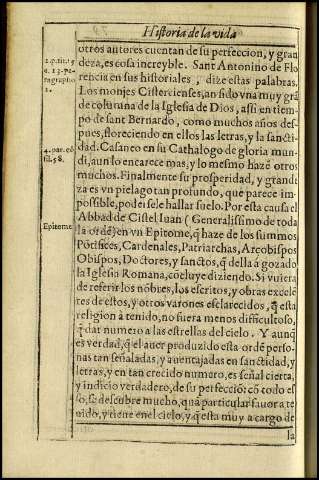 Historia de la vida
otros autores cuentan de su perfeccion, y gran
deza, es cosa increyble. Sant Antonino de Flo
rencia en sus historiales, dize estas palabras.
Los monjes Cistercienses, an sido vna muy grã
de coluna de la Iglesia de Dios, assi en tiem-
po de sant Bernardo, como muchos años des-
pues, floreciendo en ellos las letras, y la sancti-
dad. Casaneo en su Cathalogo de gloria mun-
di, aun lo encarece mas, y lo mesmo hazẽ otros
muchos. Finalmente su prosperidad, y grande
za es vn pielago tan profundo, que parece im-
possible, poderse le hallar suelo. Por esta causa el
Abbad de Cistel Iuan (Generalissimo de toda
la ordẽ) en vn Epitome, q̃ haze de los summos
Põtifices, Cardenales, Patriarchas, Arcobispos
Obispos, Doctores, y sanctos, q̃ della á gozado
la Iglesia Romana, cõcluye diziendo. Si vuiera
de referir los nõbres, los escritos, y obras excelẽ
tes de estos, y otros varones esclarecidos, q̃ esta
religion à tenido, no fuera menos difficultoso,
q̃ dar numero a las estrellas del cielo. Y aunq̃
es verdad, q̃ el auer produzido esta ordẽ perso-
nas tan señaladas, y auentajadas en sanctidad, y
letras, y en tan crecido numero, es señal cierta,
y indicio verdadero, de su perfeciõ: cõ todo es
so, se descubre mucho, quã particular fauor a te
nido, y tiene en el cielo, y q̃ esta muy a cargo de
la
nographo
4. par. cõ
sil. 58.
Epitome